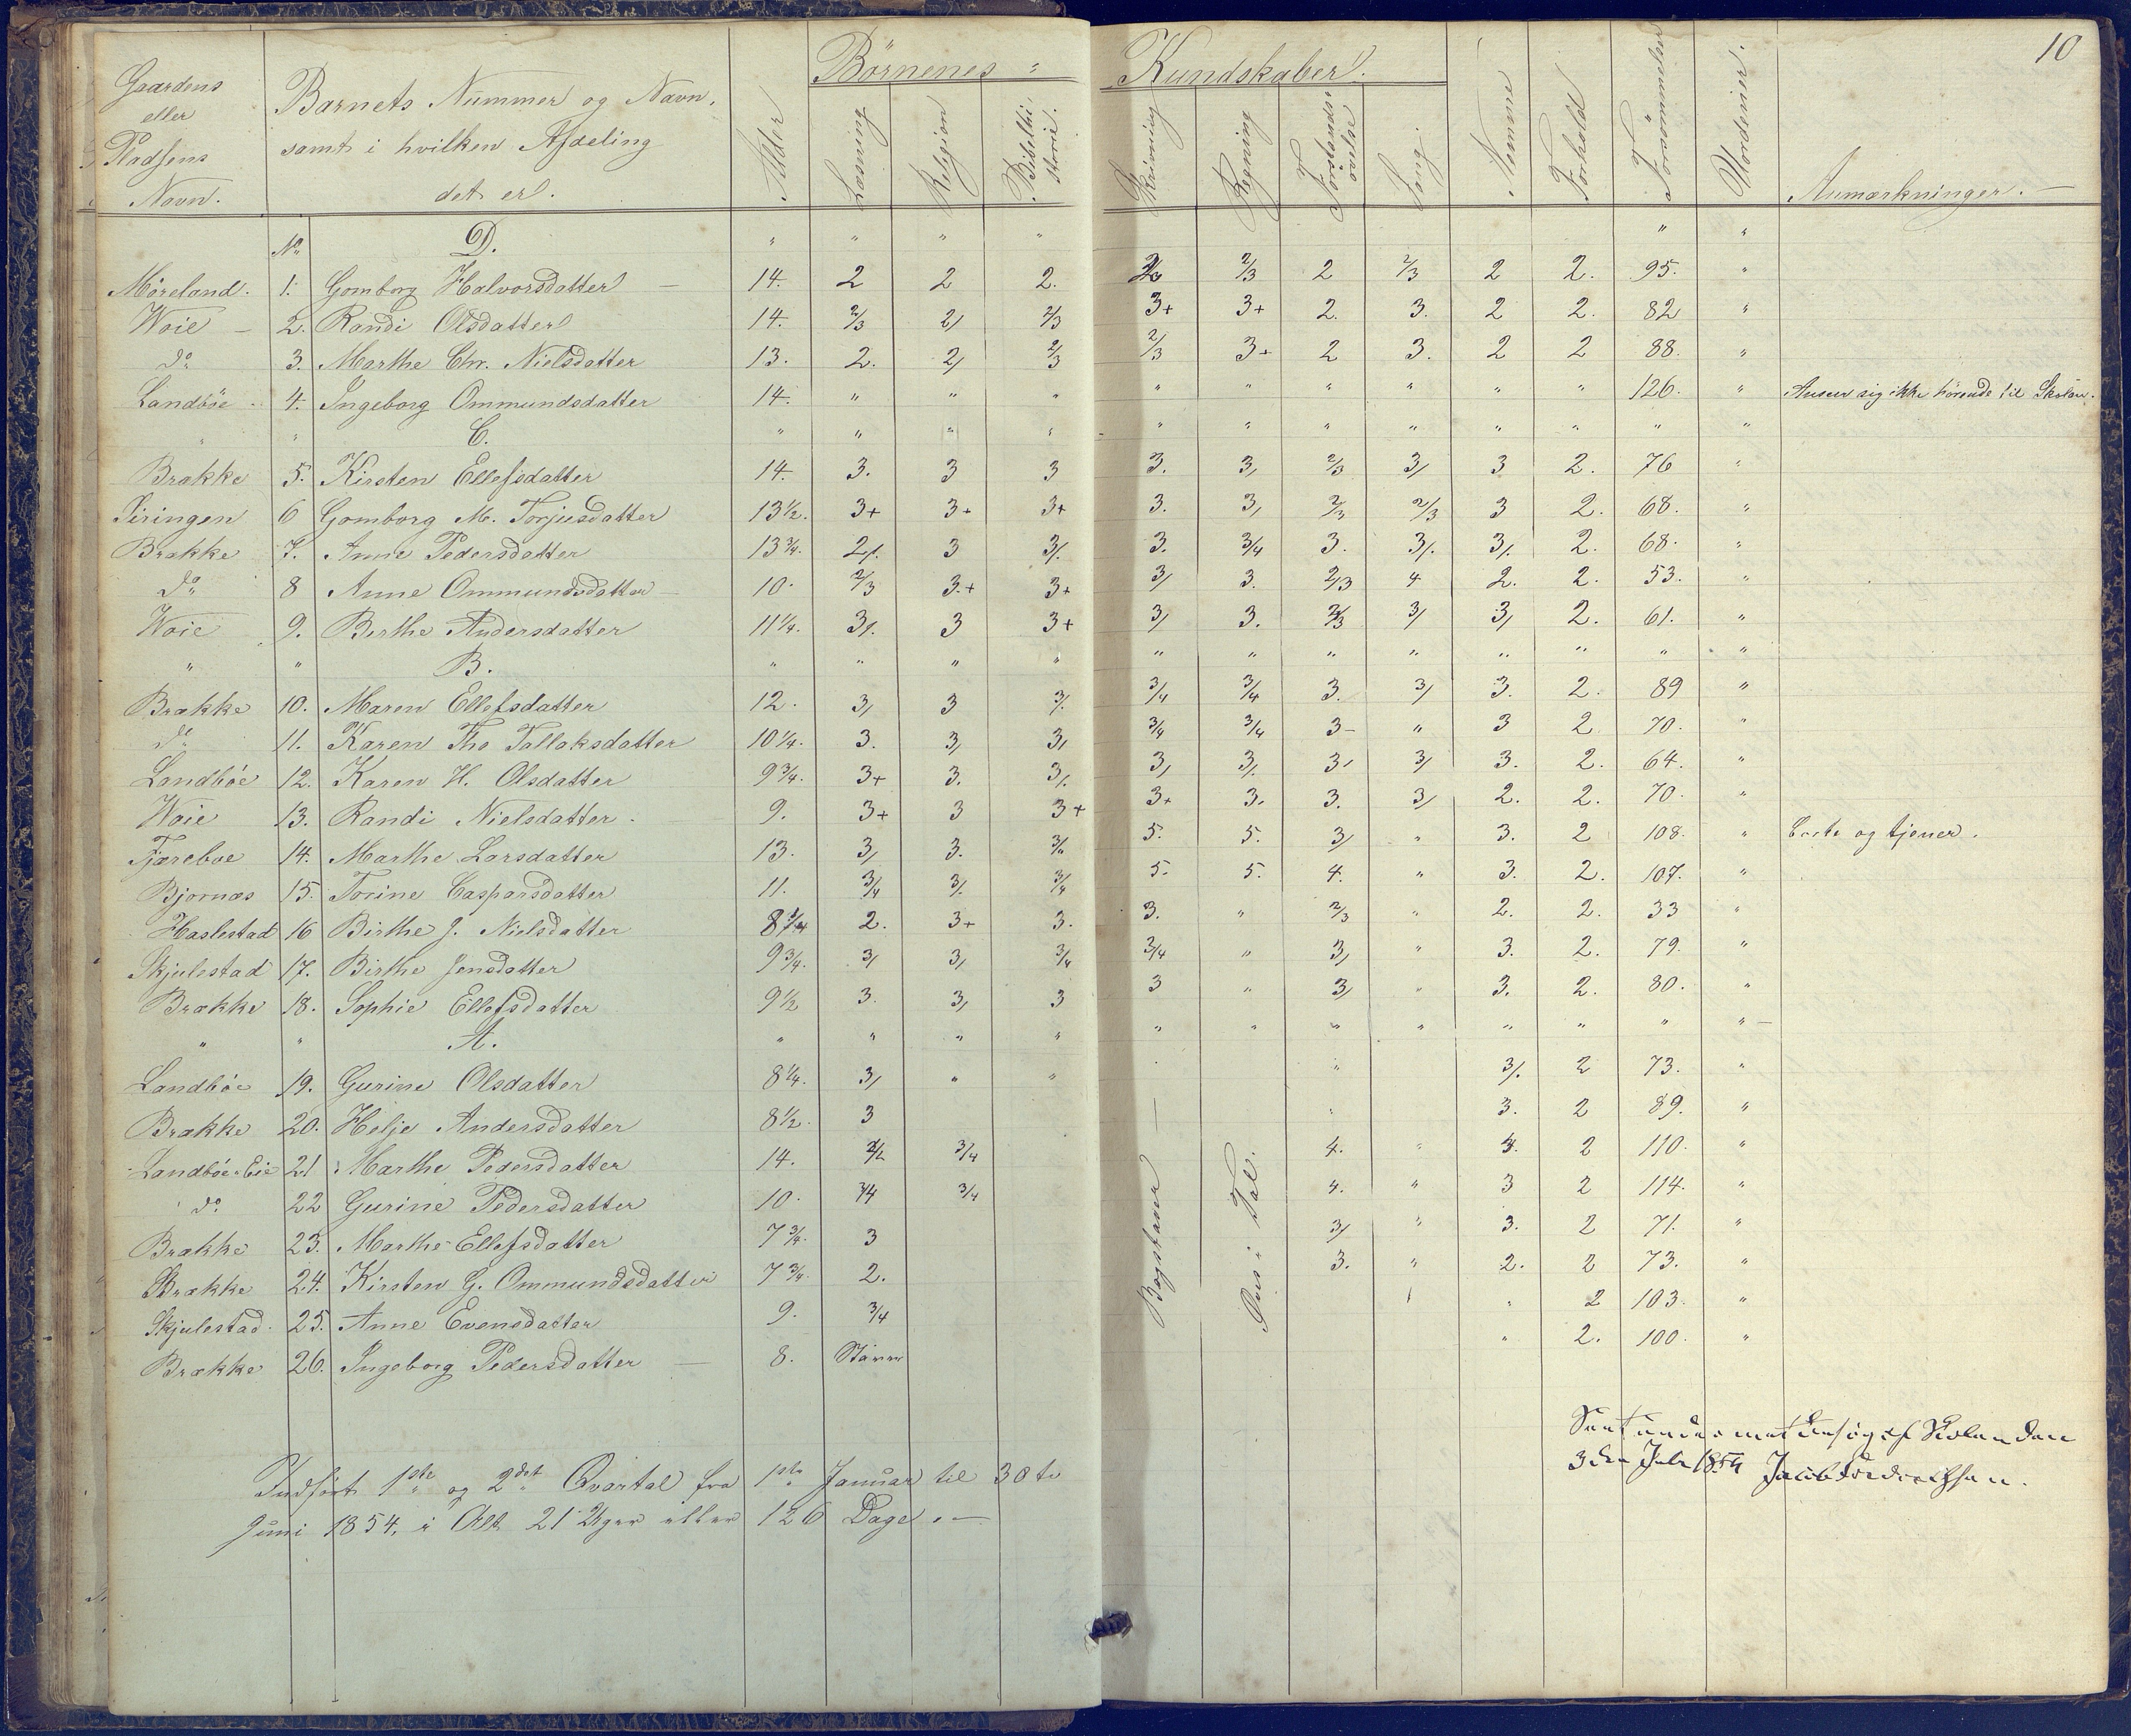 10
Börnenes " Kundskaber.
Gaardens eller Pladsens Navn.
Barnets Nummer og Navn, samt i hvilken Afdeling det er.
Alder Læsning Religion Bibelhistorie. Skrivning Regning Forstandsøvelse Sang. Nemme Forhold Forsömmelser Anmærkninger. —
No D. " " " " " "
Möreland. 1. Gomborg Halvorsdatter — 14. 2 2 2. 2/3 2/3 2 2/3 2 2. 95. "
Woie — 2. Randi Olsdatter 14. 2/3 2/ 2/3 3+ 3+ 2. 3. 2 2. 82 "
do 3. Marthe Chr. Nielsdatter 13. 2. 2/ 2/3 2/3 3+ 2 3. 2 2 88. "
Landböe - 4. Ingeborg Ommundsdatter 14. " " " " " " " " " 126. " Anseer sig ikke hörende til Skolen.
" " C. " " " " " " " " " " " "
Brække 5. Kirsten Ellefsdatter 14. 3. 3 3 3. 3/ 2/3 3/ 3 2. 76 "
Siringen 6 Gomborg M. Torjusdatter 13½. 3+ 3+ 3+ 3. 3/ 2/3 2/3 3 2. 68. "
Brække 7. Anne Pedersdatter 13¾. 2/. 3 3/. 3. 3/4 3. 3/. 3/. 2. 68. "
do 8 Anne Ommundsdatter — 10. 2/3 3.+ 3+ 3/ 3. 2/3 4 2. 2. 53. "
Woie 9. Berthe Andersdatter 11¼. 3/. 3 3+ 3/ 3. 2/3 3/ 3/ 2. 61. "
" " B. " " " " " " " " " " " "
Brække 10. Maren Ellefsdatter 12. 3/ 3 3/. 3/4 3/4 3. 3/ 3. 2. 89 "
do 11. Karen Tho Tallaksdatter 10¼. 3. 3/ 3/ 3/4 3/4 3- " 3 2 70. "
Landböe 12. Karen H. Olsdatter 9¾. 3+ 3. 3/. 3/ 3/. 3/ 3/ 3. 2. 64. "
Woie 13. Randi Nielsdatter. 9. 3+ 3 3+ 3+ 3. 3. 3/ 2. 2. 70. "
Fjæreboe 14. Marthe Larsdatter 13. 3/ 3. 3/. 5. 5. 3/ " 3. 2 108. " Borte og tjener.
Bjornæs 15. Torine Casparsdatter 11. 3/4 3/. 3/4 5. 5. 4. " 3. 2. 107. "
Haslestad 16 Birthe J. Nielsdatter 8¼ 2. 3+ 3. 3. " 2/3 " 2. 2. 33 "
Skjulestad 17. Birthe Jensdatter 9¾. 3/ 3/ 3/4 3/4 " 3/ " 3. 2. 79. "
Brække 18. Sophie Ellefsdatter 9½ 3. 3/ 3 3 " 3/ " 3. 2. 80. "
" " A. " " " " " " " " " " " " —
Landböe 19. Gurine Olsdatter 8¼. 3/ " " " 3/. 2 73. "
Brække 20. Helje Andersdatter 8½. 3 3. 2 89. "
Landböe Eie 21 Marthe Pedersdatter 14. 3/4 4. " 4. 2 110. "
do 22 Gurine Pedersdatter 10. 3/4 3/4 4. " 3 2 114. "
Brække 23. Marthe Ellefsdatter 7¾. 3 3/ " 3. 2 71. "
Brække 24. Kirsten G. Ommundsdatter 7¾. 2. 3. " 2. 2 73. "
Skjulestad. 25. Anne Evensdatter 9. 3/4 " 2 103. "
Brække 26. Ingeborg Pedersdatter — 8. Staver " 2. 100. "
Bogstaver
i Tal.
Indfört 1ste og 2det Qvartal fra 1ste Januar til 30te
Juni 1854, i Alt 21 Uger eller 126 Dage. —
3 den Juli 1854 Jacob